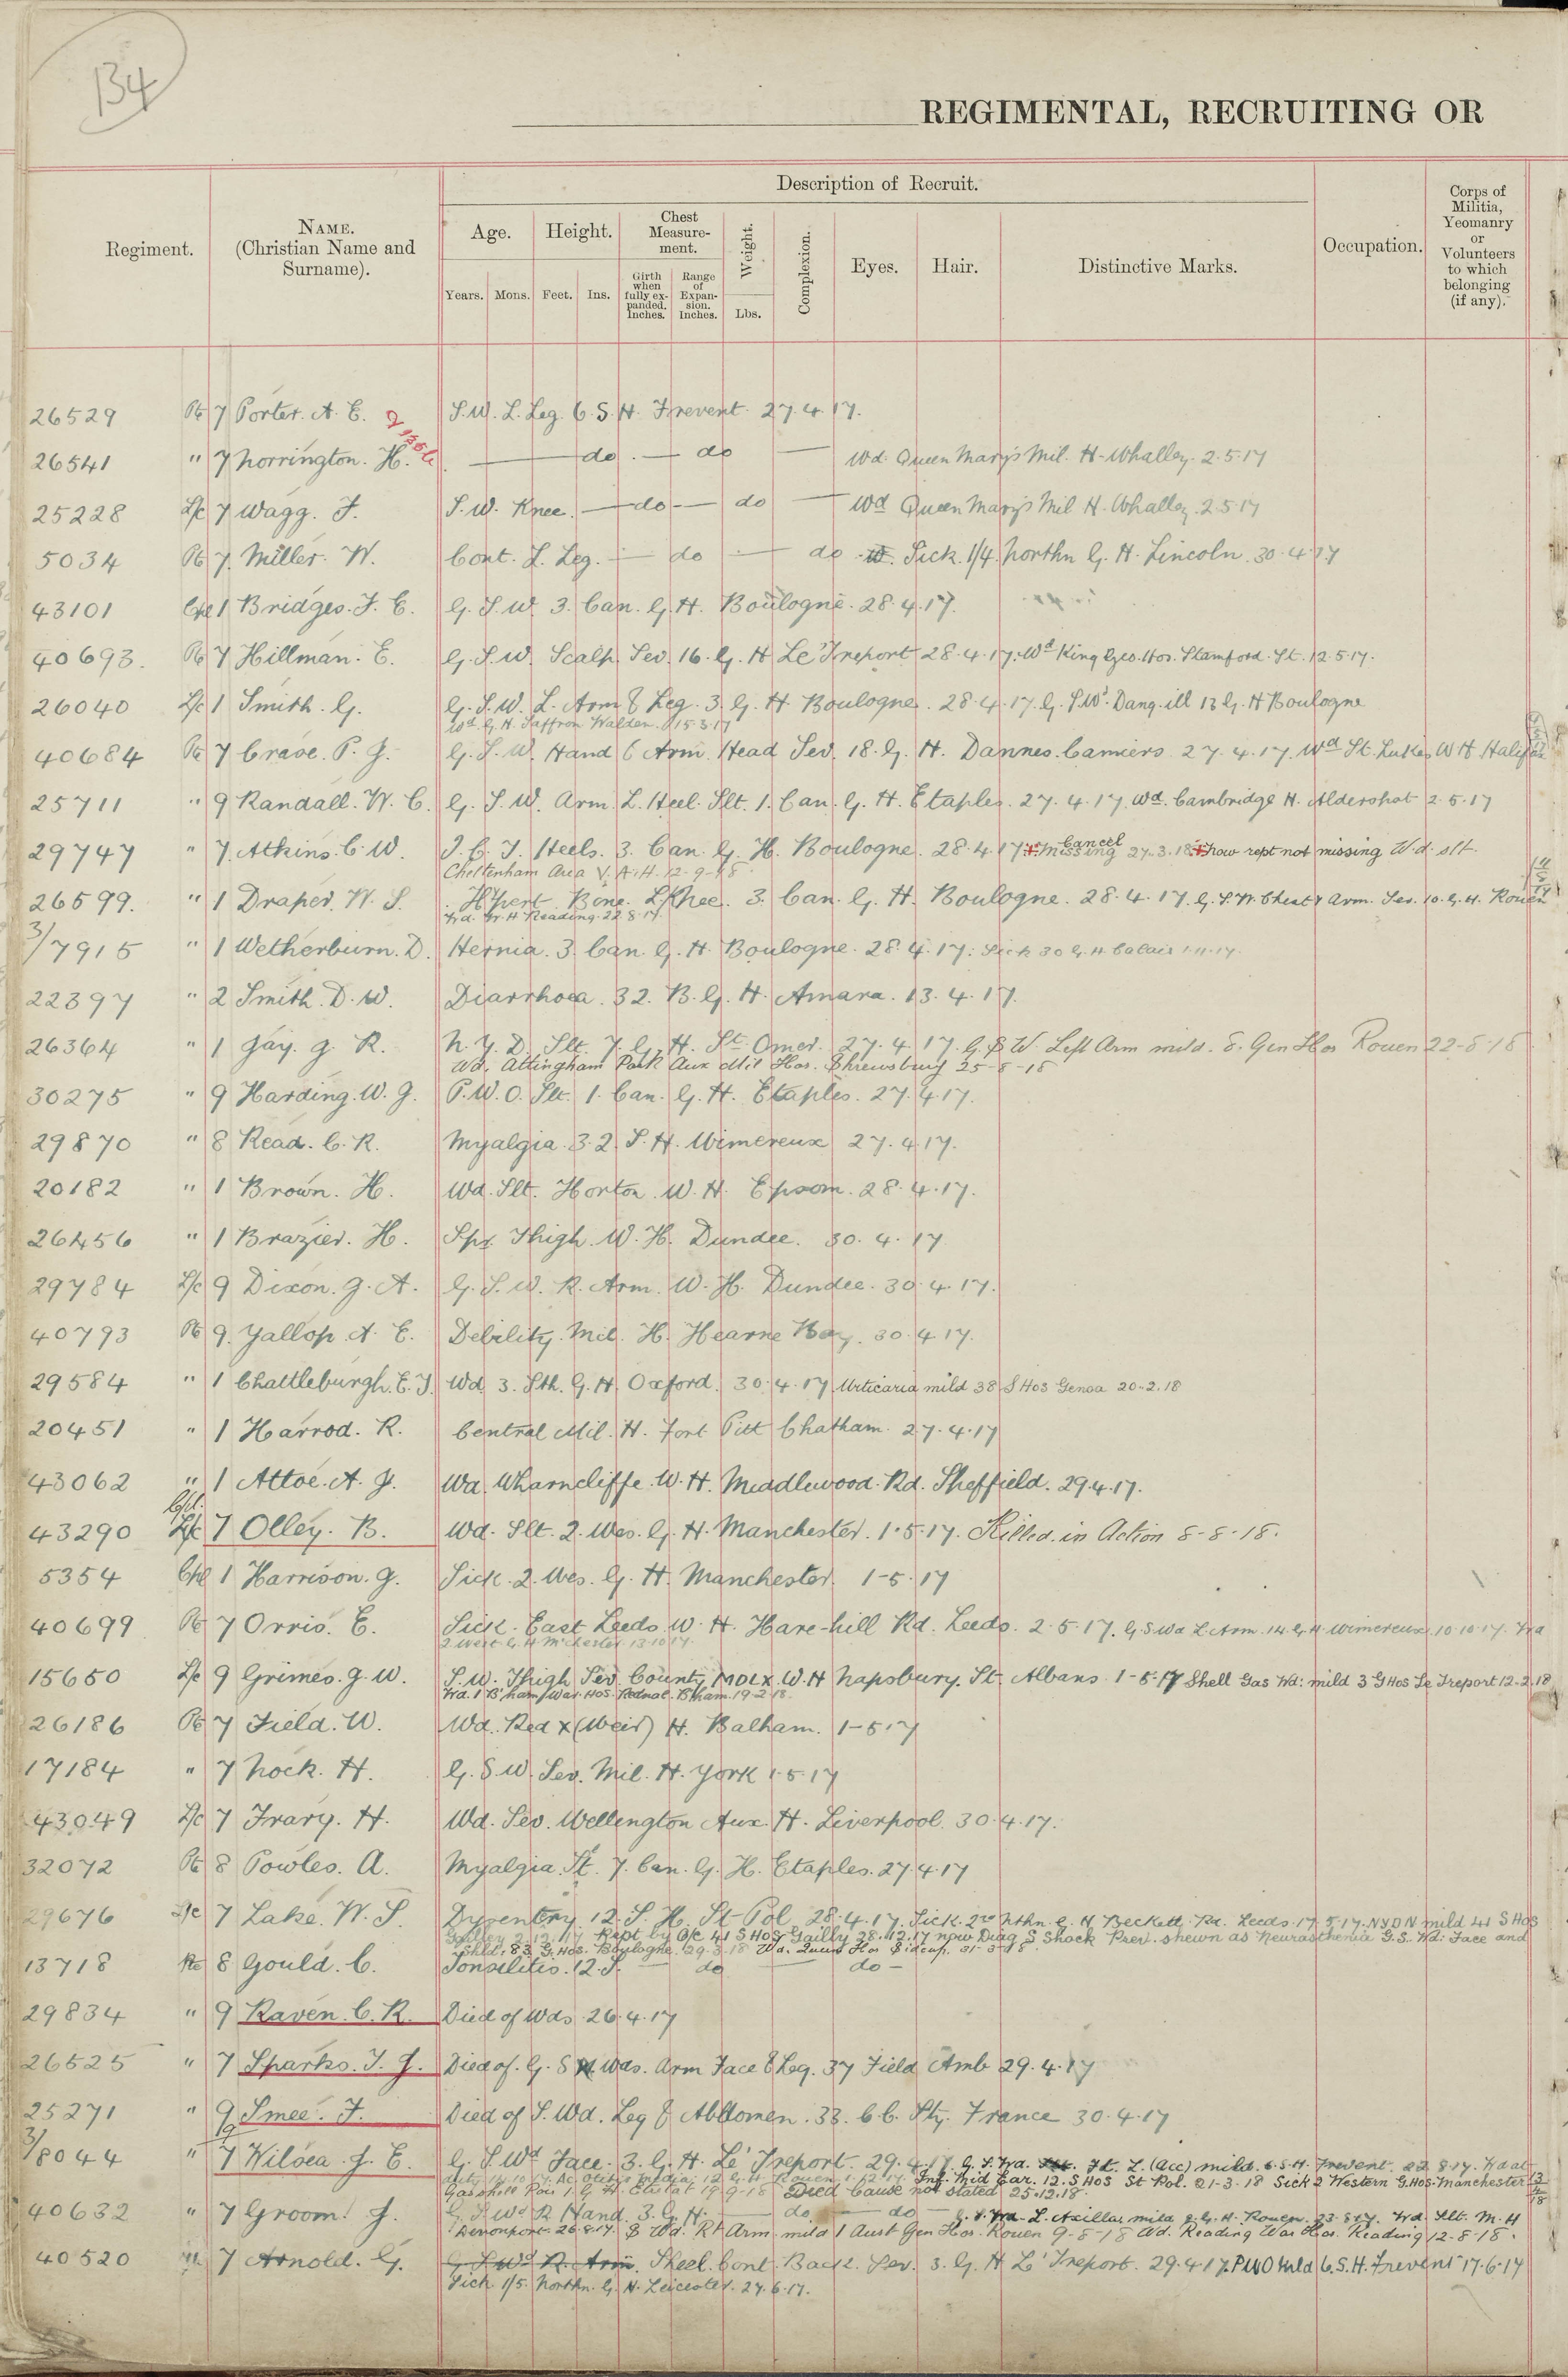 134
REGIMENTAL, RECRUITING OR
Regiment.
NAME.
(Christian Name and
Surname).
Description of Recruit.
Age.
Height.
Chest
Measure-
ment.
Weight.
Complexion.
Eyes.
Hair.
Distinctive Marks.
Occupation.
Corps of
Militia,
Yeomanry
or
Volunteers
to which
belonging
(if any).
Years.
Mons.
Feet.
Ins.
Girth
when
fully ex-
panded.
Inches.
Range
of
Expan-
sion.
Inches.
Lbs.
26529 Pte 7 Porter. A. E. S.W. L. Leg. 6. S. H. Frevent. 27.4.17.
26541 " 7 Norrington. H. — do. — do — Wd. Queen Mary's Mil. H. Whalley. 2.5.17
25228 L/c 7 Wagg. F. S.W. Knee. — do — do — Wd Queen Mary's Mil H. Whalley. 2.5.17
5034 Pte 7. Miller. W. Cont. L. Leg. — do — do. Sick. 1/4. Northn G. H. Lincoln. 30.4.17
43101 Cpl 1 Bridges. F. E. G. S. W. 3. Can. G. H. Boulogne. 28.4.17.
40693. Pte 7 Hillman. E. G. S. W. Scalp. Sev. 16. G. H Le Treport 28.4.17. Wd King Geo. Hos. Stamford. St. 12.5.17.
26040 L/c 1 Smith. G. G. S. W. L. Arm & Leg. 3. G. H. Boulogne. 28.4.17. G. S. W. Dang. ill 13 G. H Boulogne
Wd. G. H. Saffron Walden. 15.3.17
40684 Pte 7 Crase. P. J. G. S. W. Hand & Arm. Head Sev. 18. G. H. Dannes. Camiers 27.4.17. Wd St. Lukes W H Halifax
25711 " 9 Randall. W. C. G. S. W. Arm L. Heel. Slt. 1. Can. G. H. Etaples. 27.4.17. Wd. Cambridge H. Aldershot 2.5.17
29747 " 7. Atkins. C. W. I. C. T. Heels. 3. Can. G. H. Boulogne. 28.4.17. Missing 27.3.18. Cancel now rept not missing Wd. slt.
Cheltenham Area V. A. H. 12-9-18
26599. " 1 Draper. W. S. Hypert. Bone. L Knee. 3. Can. G. H. Boulogne. 28.4.17. G. S. W. Chest & Arm. Sev. 10. G. H. Rouen
Wd. W. H Reading. 22.8.17.
3/7915 " 1 Wetherburn. D. Hernia. 3. Can. G. H. Boulogne. 28.4.17: Sick 30 G. H. Calais 1.11.17.
22397 " 2 Smith. D. W. Diarrhoea. 32. B. G. H. Amara. 13.4.17.
26364 " 1 Jay. G. R. N. Y. D. Slt. 7. G. H. St. Omer. 27.4.17. G. S W. Left Arm mild. 8. Gen Hos Rouen 22-8-18
Wd. Attingham Park Aux Mil Hos. Shrewsbury 25-8-18
30275 " 9 Harding. W. G. P. W. O. Slt. 1. Can. G. H. Etaples. 27.4.17.
29870 " 8 Read. C. R. Myalgia. 3. 2. S. H. Wimereux 27.4.17.
20182 " 1 Brown. H. Wd. Slt. Horton. W. H. Epsom. 28.4.17.
26456 " 1 Brazier. H. Spr Thigh. W. H. Dundee. 30.4.17
29784 L/c 9 Dixon. G. A. G. S. W. R. Arm. W. H. Dundee. 30.4.17.
40793 Pte 9. Yallop. A. E. Debility. Mil. H. Hearne Bay. 30.4.17.
29584 " 1 Chattleburgh. E. J. Wd. 3. Sth. G. H. Oxford. 30.4.17. Urticaria mild 38 S Hos Genoa 20.2.18
20451 " 1 Harrod. R. Central Mil. H. Fort Pitt Chatham. 27.4.17
43062 " 1 Attoe. A. J. Wd. Wharncliffe. W. H. Middlewood. Rd. Sheffield. 29.4.17.
43290 Cpl. L/c 7 Olley. B. Wd. Slt. 2. Wes. G. H. Manchester. 1.5.17. Killed. in Action 8-8-18.
5354 Cpl 1 Harrison. G. Sick. 2. Wes. G. H. Manchester. 1-5-17
40699 Pte 7 Orris. E. Sick. East Leeds. W. H. Hare-hill Rd. Leeds. 2.5.17. G. S Wd L. Arm. 14. G. H. Wimereux. 10.10.17. Wd
2 West G. H M'chester 13.10.17.
15650 L/c 9 Grimes. G. W. S. W. Thigh Sev. County MDLX. W. H Napsbury. St. Albans. 1-5-17 Shell Gas Wd: mild 3 G Hos Le Treport 12-2.18
Wd. 1 B'ham War. Hos. Rednal. B'ham. 19-2-18.
26186 Pte 7 Field. W. Wd. Red X (Weir) H. Balham. 1-5-17
17184 " 7 Nock. H. G. S. W. Sev. Mil. H. York 1.5.17
43049 L/c 7 Frary. H. Wd. Sev. Wellington Aux. H. Liverpool. 30.4.17.
32072 Pte 8 Powles. A. Myalgia. Slt. 7. Can. G. H. Etaples. 27.4.17
29676 L/c 7 Lake. W. S. Dysentery. 12. S. H. St-Pol. 28.4.17. Sick. 2nd Nthn. G. H. Beckett. Pk. Leeds. 17.5.17. N Y D N mild 41 S Hos
Gailley 2.12.17 Rept by O/c 41 S Hos Gailly 28.12.17 now Diag S Shock Prev. shewn as Neurasthenia G. S. Wd: Face and
83 G. Hos. Boulogne. 29.3.18 Wd. Queens Hos Sidcup. 31-3-18.
13718 Pte 8 Gould. C. Tonsilitis. 12. S. — do — do —
29834 " 9 Raven. C. R. Died of Wds. 26.4.17
26525 " 7 Sparks. T. J. Died of. G. S. Wds. Arm Face & Leg. 37 Field Amb 29.4.17
25271 " 9 Smee. F. Died of S. Wd. Leg & Abdomen. 33. C. C. Stn. France 30.4.17
3/8044 " 7 Wilsea. J. E. G. S. Wd Face. 3. G. H. Le' Treport. 29.4.17. G. S. Wd. Ft. L. (acc) mild. 6. S. H. Frevent. 22.8.17. Wd at
Inf. Mid Ear. 12. S Hos St Pol. 21-3-18 Sick 2 Western G. Hos. Manchester
Gas shell Pois 1 G H Etretat 19-9-18 Died Cause not stated. 25.12.18.
40632 " 7 Groom. J. G. S Wd R Hand. 3. G. H. — do — do — G. S. Wd L. Axillar mild 9. G. H. Rouen. 23.8.17. Wd. Slt. M. H
Devonport. 26.8.17. G Wd. Rt Arm. mild 1 Aust Gen Hos. Rouen 9-8-18 Wd. Reading War Hos. Reading 12-8-18.
40520 7 Arnold. G. G. S Wd R. Arm. Shell. Cont. Back. Sev. 3. G. H Le' Treport. 29.4.17. PUO Mild 6. S. H. Frevent 17.6.17
Sick 1/5. Northn. G. H. Leicester. 27.6.17.